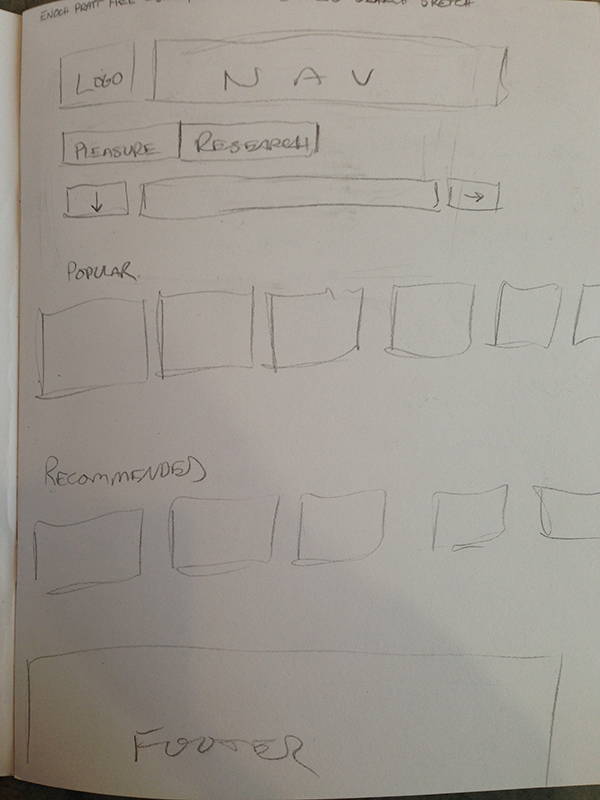 ENOCH PRATT FREE SEARCH SKETCH
LOGO NAV
PLEASURE RESEARCH
POPULAR
RECOMMENDED
FOOTER